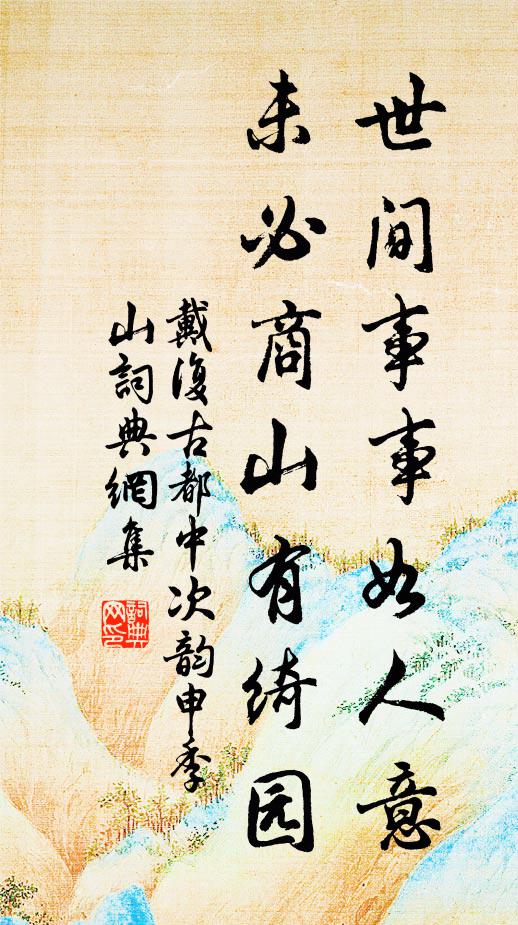 世间事事如人意
未必商山有绮园
戴復古都中次韵申季
山詞典網集
詞典
网印